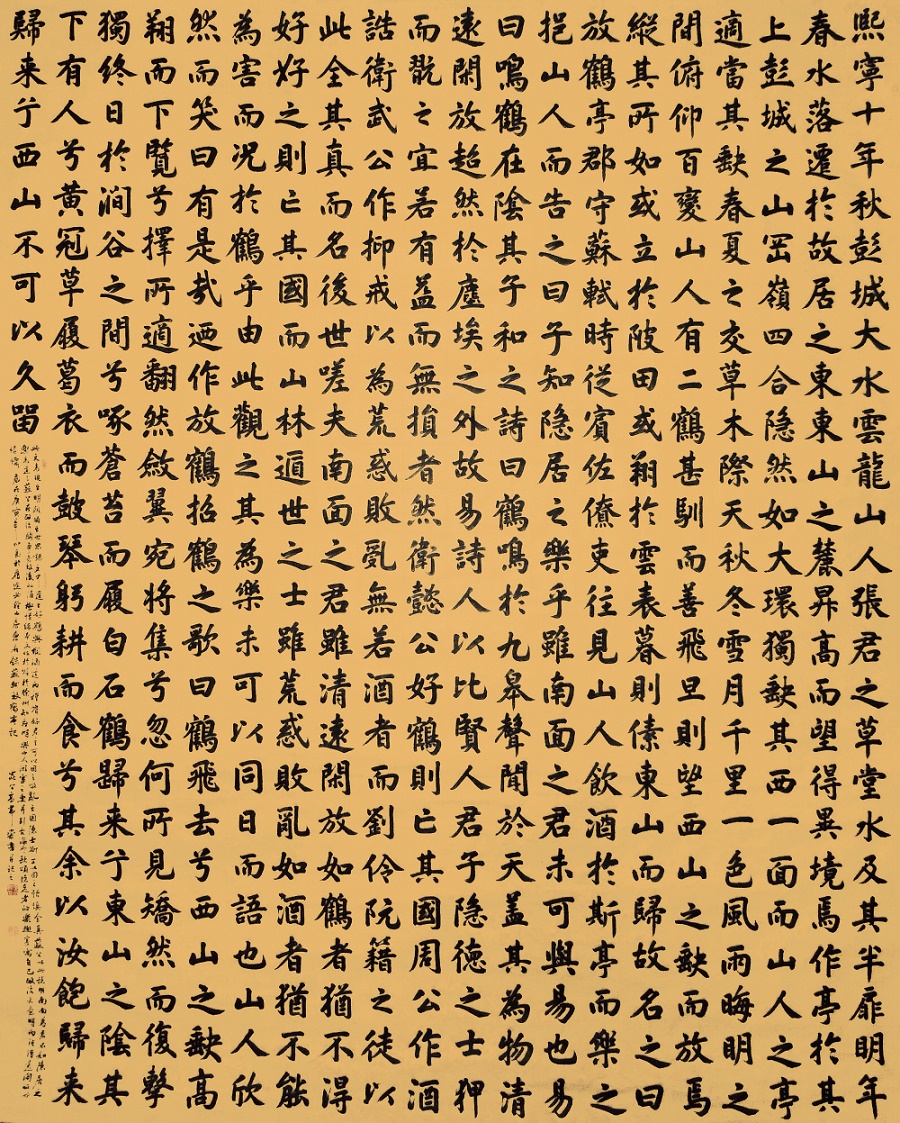 熙寧十年秋彭城大水雲龍山人張君之草堂水及其半扉明年
春水落遷於故居之東東山之麓昇高而望得異境焉作亭於其
上彭城之山岡嶺四合隐然如大環獨缺其西一面而山人之亭
適當其缺春夏之交草木際天秋冬雪月千里一色風雨晦明之
間俯仰百變山人有二鶴甚馴而善飛旦則望西山之缺而放焉
縱其所如或立於陂田或翔於雲表暮則傃東山而歸故名之曰
放鶴亭郡守蘇軾時從賓佐僚吏往見山人飲酒於斯亭而樂之
挹山人而告之曰子知隐居之樂乎雖南面之君未可與易也易
曰鳴鶴在陰其子和之詩曰鶴鳴於九皋聲聞於天蓋其為物清
遠閑放超然於塵埃之外故易詩人以比賢人君子隐德之士狎
而翫之宜若有益而無損者然衛懿公好鶴則亡其國周公作酒
誥衛武公作抑戒以為荒惑敗亂無若酒者而劉伶阮籍之徒以
此全其真而名後世嗟夫南面之君雖清遠閑放如鶴者猶不得
好好之則亡其國而山林遁世之士雖荒惑敗亂如酒者猶不能
為害而况於鶴乎由此觀之其為樂未可以同日而語也山人欣
然而笑曰有是哉迺作放鶴招鶴之歌曰鶴飛去兮西山之缺高
翔而下覽兮擇所適翻然斂翼宛將集兮忽何所見矯然而復擊
獨終日於澗谷之間兮啄蒼苔而履白石鶴歸来兮東山之陰其
下有人兮黃冠草履葛衣而鼓琴躬耕而食兮其余以汝飽歸来
歸来兮西山不可以久留